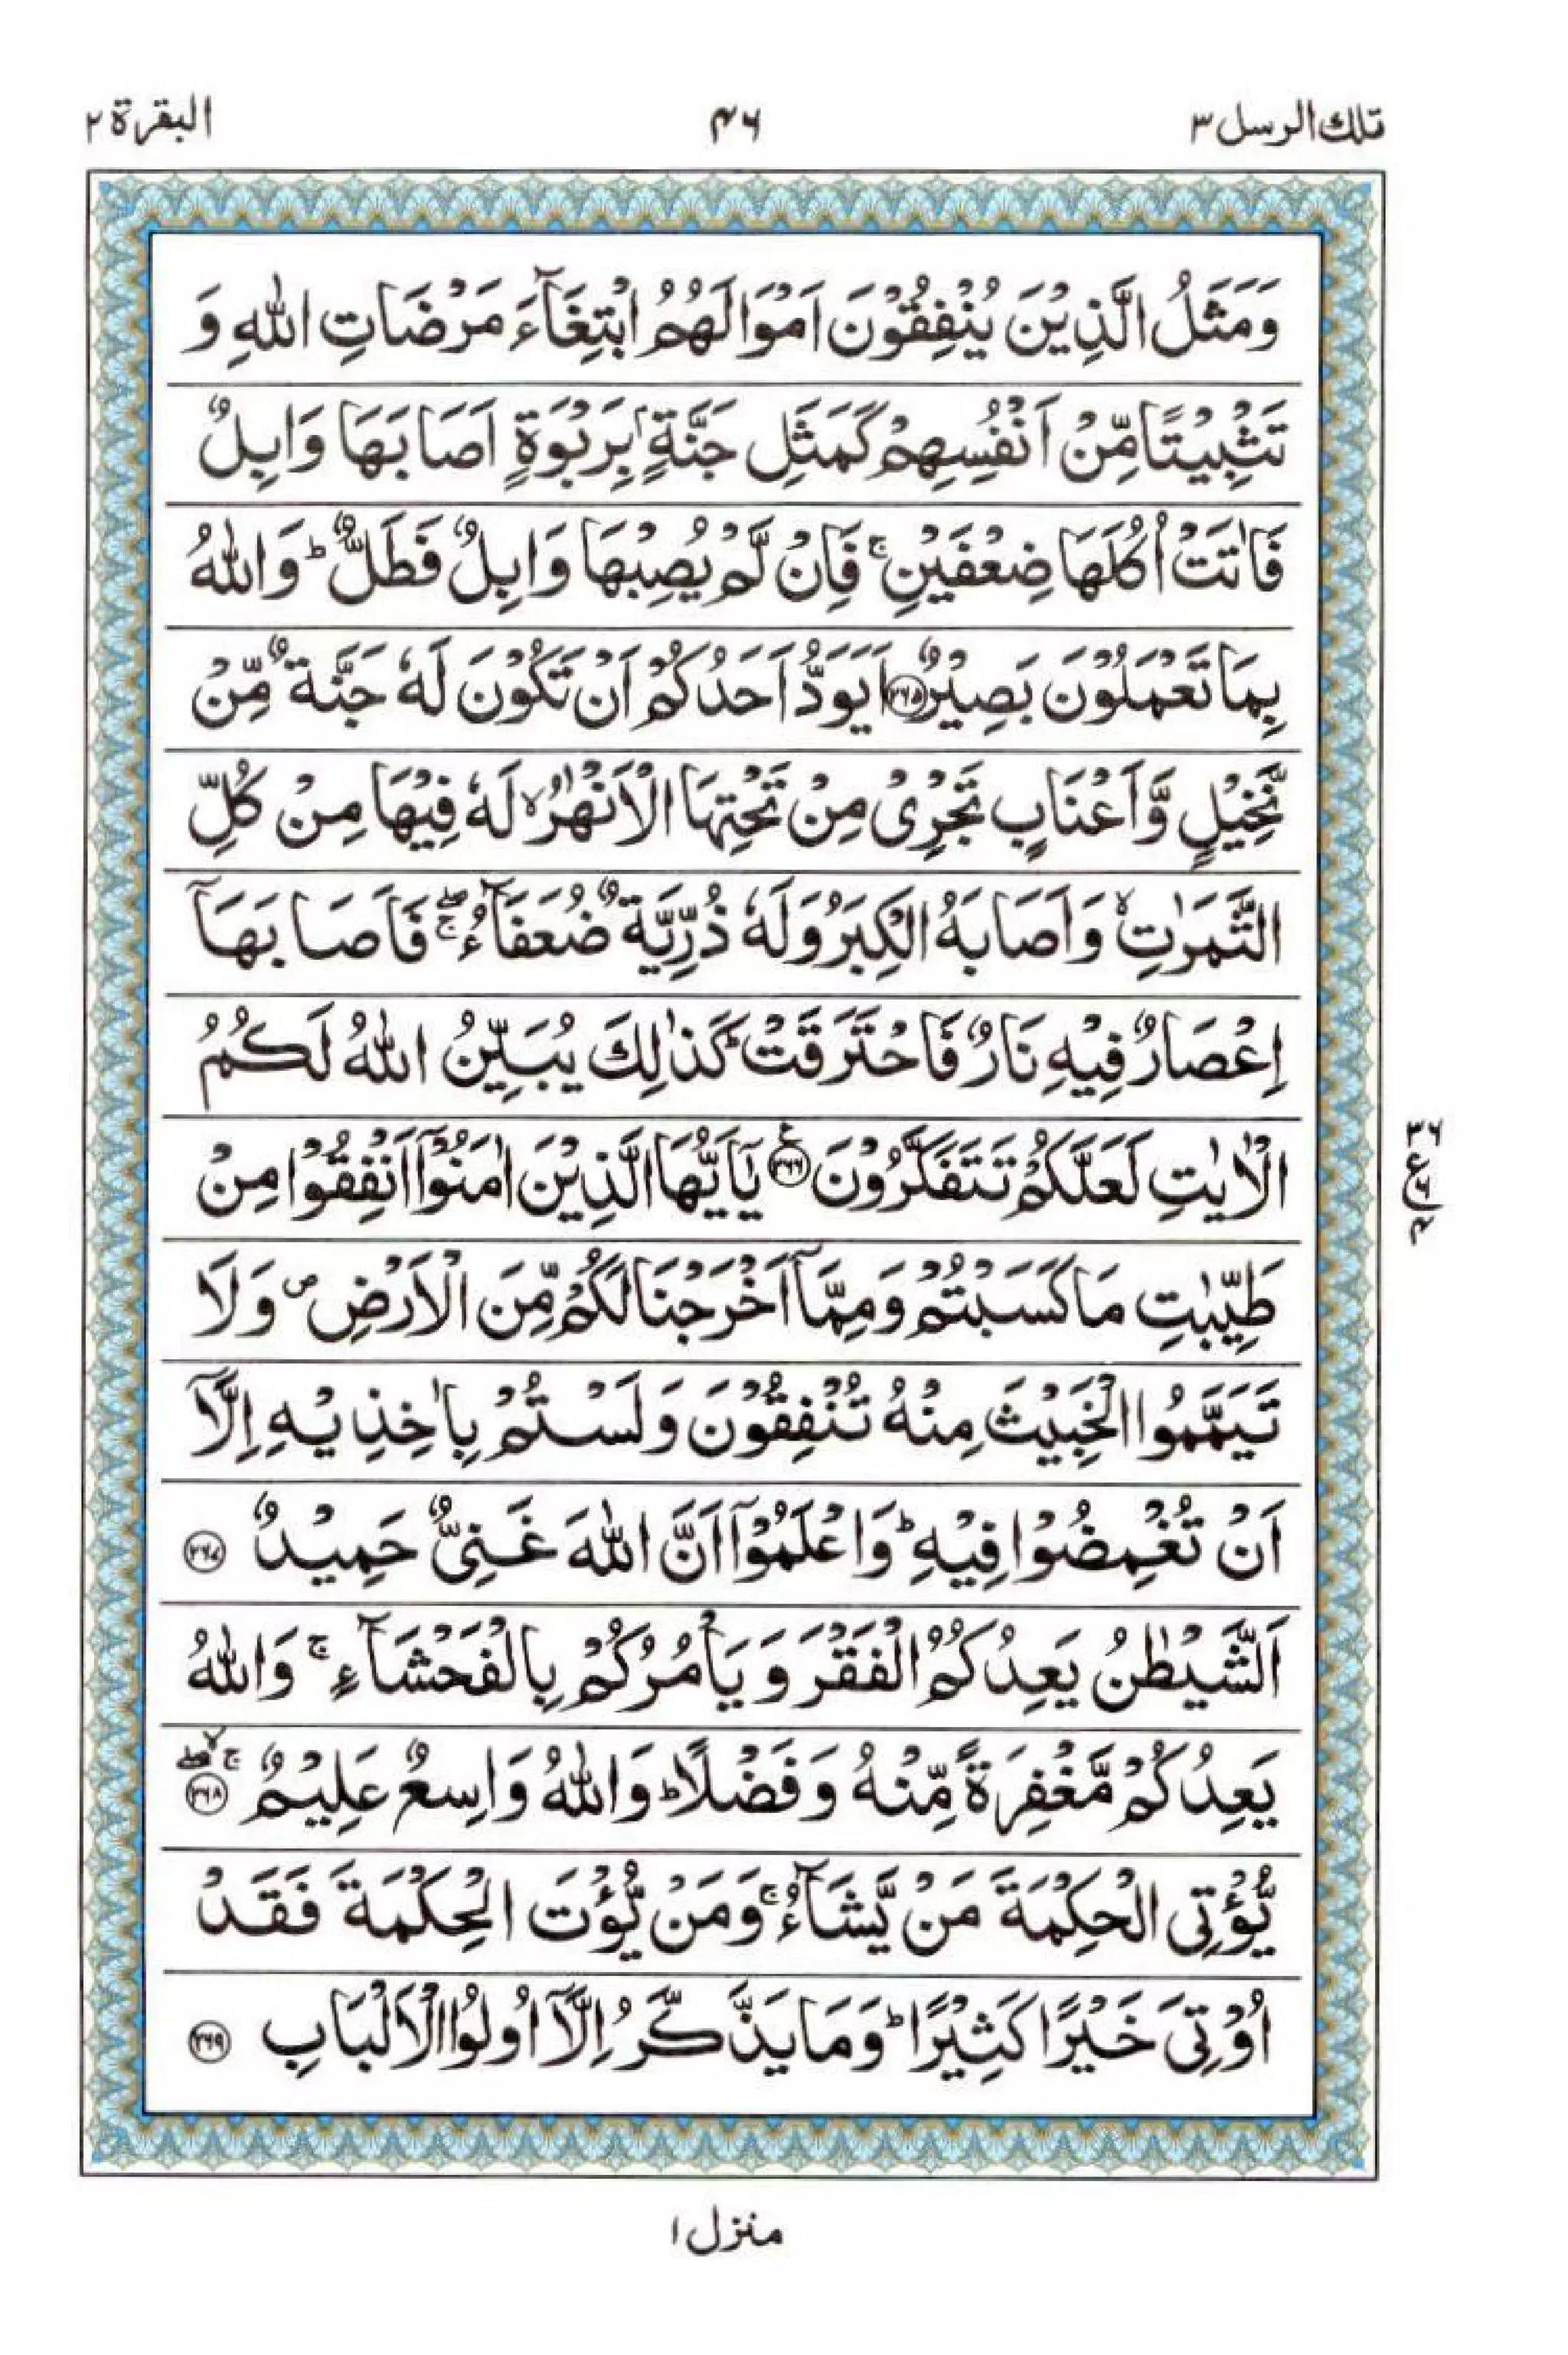 تلك الرسل ٣
٤٦
البقرة ٢
وَمَثَلُ الَّذِيْنَ يُنْفِقُوْنَ اَمْوَالَهُمُ ابْتِغَآءَ مَرْضَاتِ اللّٰهِ وَ
تَثْبِيْتًا مِّنْ اَنْفُسِهِمْ كَمَثَلِ جَنَّةٍۭ بِرَبْوَةٍ اَصَابَهَا وَابِلٌ
فَاٰتَتْ اُكُلَهَا ضِعْفَيْنِ ۚ فَاِنْ لَّمْ يُصِبْهَا وَابِلٌ فَطَلٌّ ؕ وَاللّٰهُ
بِمَا تَعْمَلُوْنَ بَصِيْرٌ ﴿۲۶۵﴾ اَيَوَدُّ اَحَدُكُمْ اَنْ تَكُوْنَ لَهٗ جَنَّةٌ مِّنْ
نَّخِيْلٍ وَّاَعْنَابٍ تَجْرِيْ مِنْ تَحْتِهَا الْاَنْهٰرُ ۙ لَهٗ فِيْهَا مِنْ كُلِّ
الثَّمَرٰتِ ۙ وَاَصَابَهُ الْكِبَرُ وَلَهٗ ذُرِّيَّةٌ ضُعَفَآءُ ۖۚ فَاَصَابَهَاۤ
اِعْصَارٌ فِيْهِ نَارٌ فَاحْتَرَقَتْ ؕ كَذٰلِكَ يُبَيِّنُ اللّٰهُ لَكُمُ
الْاٰيٰتِ لَعَلَّكُمْ تَتَفَكَّرُوْنَ ﴿۲۶۶﴾ ع يٰۤاَيُّهَا الَّذِيْنَ اٰمَنُوْۤا اَنْفِقُوْا مِنْ
۳۶
ع ۶
۴
طَيِّبٰتِ مَا كَسَبْتُمْ وَمِمَّاۤ اَخْرَجْنَا لَكُمْ مِّنَ الْاَرْضِ ۪ وَلَا
تَيَمَّمُوا الْخَبِيْثَ مِنْهُ تُنْفِقُوْنَ وَلَسْتُمْ بِاٰخِذِيْهِ اِلَّاۤ
اَنْ تُغْمِضُوْا فِيْهِ ؕ وَاعْلَمُوْۤا اَنَّ اللّٰهَ غَنِيٌّ حَمِيْدٌ ﴿۲۶۷﴾
اَلشَّيْطٰنُ يَعِدُكُمُ الْفَقْرَ وَيَاْمُرُكُمْ بِالْفَحْشَآءِ ۚ وَاللّٰهُ
يَعِدُكُمْ مَّغْفِرَةً مِّنْهُ وَفَضْلًا ؕ وَاللّٰهُ وَاسِعٌ عَلِيْمٌ ﴿۲۶۸﴾ ۖۚۙ
يُّؤْتِي الْحِكْمَةَ مَنْ يَّشَآءُ ۚ وَمَنْ يُّؤْتَ الْحِكْمَةَ فَقَدْ
اُوْتِيَ خَيْرًا كَثِيْرًا ؕ وَمَا يَذَّكَّرُ اِلَّاۤ اُولُوا الْاَلْبَابِ ﴿۲۶۹﴾
منزل ۱